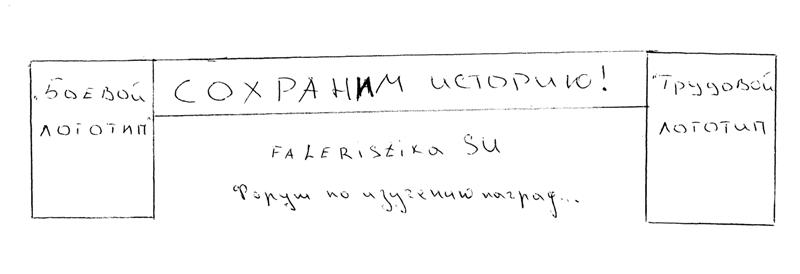 "Боевой
логотип"
СОХРАНИМ историю!
FALERISTIKA SU
Форум по изучению наград...
"Трудовой
логотип